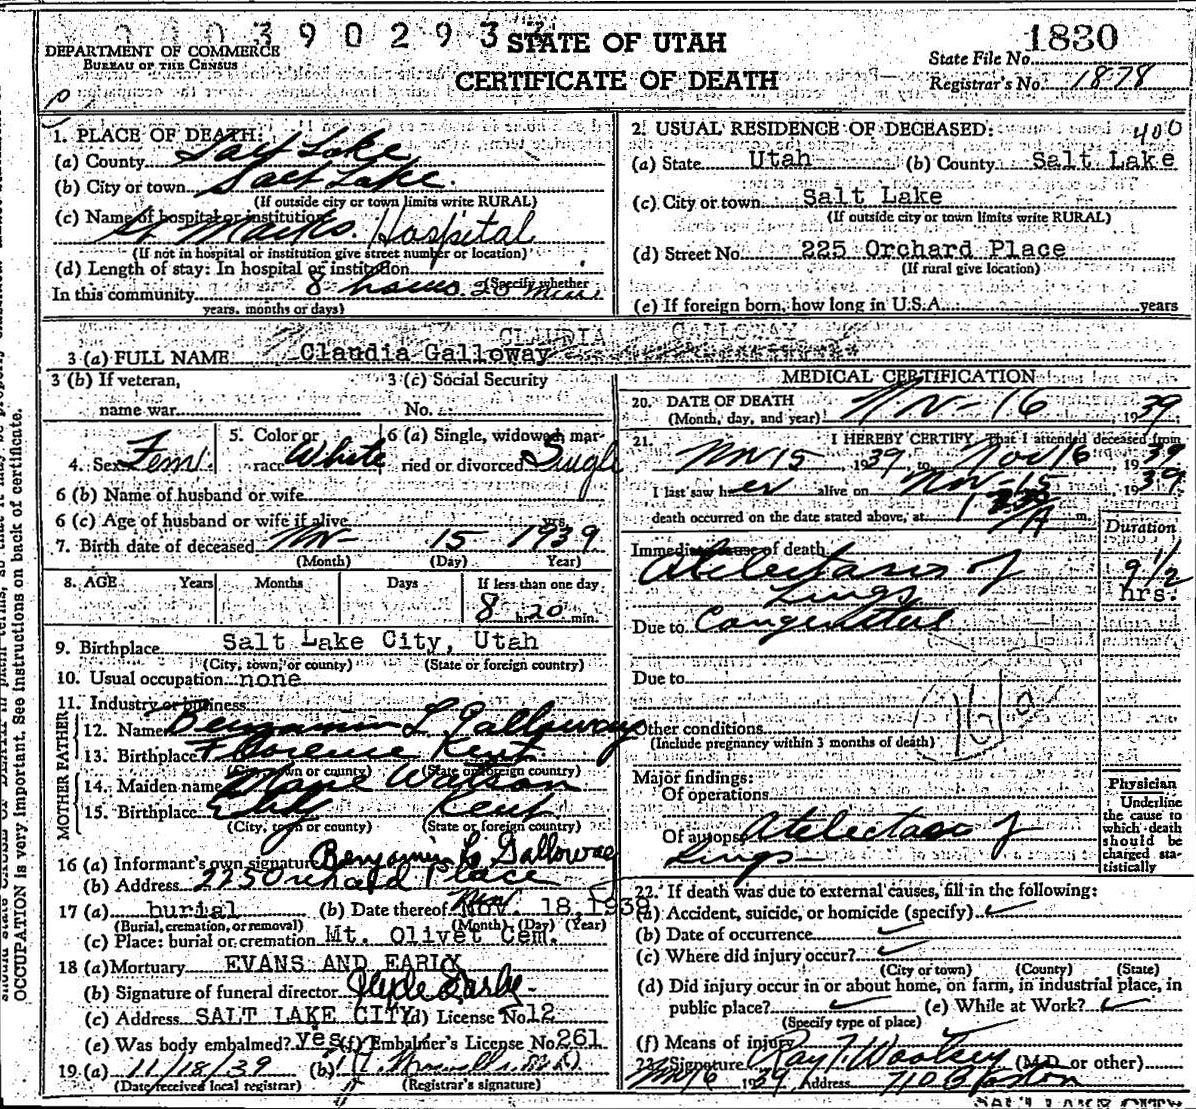 0 0 0 3 9 0 2 9 3
STATE OF UTAH
CERTIFICATE OF DEATH
DEPARTMENT OF COMMERCE
BUREAU OF THE CENSUS
State File No. 1830
Registrar's No. 1878
1. PLACE OF DEATH:
(a) County Salt Lake
(b) City or town Salt Lake
(If outside city or town limits write RURAL)
(c) Name of hospital or institution
St Marks Hospital
(If not in hospital or institution give street number or location)
(d) Length of stay: In hospital or institution
(Specify whether
In this community 8 hours 20 min
years, months or days)
2. USUAL RESIDENCE OF DECEASED: 400
(a) State Utah (b) County Salt Lake
(c) City or town Salt Lake
(If outside city or town limits write RURAL)
(d) Street No. 225 Orchard Place
(If rural give location)
(e) If foreign born, how long in U.S.A. years
CLAUDIA GALLOWAY
3 (a) FULL NAME Claudia Galloway
3 (b) If veteran,
name war
3 (c) Social Security
No.
4. Sex Fem.
5. Color or
race White
6 (a) Single, widowed, mar-
ried or divorced Single
6 (b) Name of husband or wife
6 (c) Age of husband or wife if alive yrs.
7. Birth date of deceased Nov 15 1939
(Month) (Day) Year)
8. AGE Years Months Days If less than one day
8 hr. 20 min.
9. Birthplace Salt Lake City, Utah
(City, town, or county) (State or foreign country)
10. Usual occupation none
11. Industry or business
FATHER
12. Name Benjamin L Galloway
13. Birthplace Florence Kent
(City, town or county) (State or foreign country)
MOTHER
14. Maiden name Watson
15. Birthplace Kent
(City, town or county) (State or foreign country)
16 (a) Informant's own signature Benjamin L Galloway
(b) Address 225 Orchard Place
17 (a) burial (b) Date thereof Nov. 18, 1939
(Burial, cremation, or removal) (Month) (Day) (Year)
(c) Place: burial or cremation Mt. Olivet Cem.
18 (a) Mortuary EVANS AND EARLY
(b) Signature of funeral director
(c) Address SALT LAKE CITY (d) License No. 12
(e) Was body embalmed? yes (f) Embalmer's License No. 261
19 (a) 11/18/39 (b)
(Date received local registrar) (Registrar's signature)
MEDICAL CERTIFICATION
20. DATE OF DEATH
(Month, day, and year) Nov-16, 1939
21. I HEREBY CERTIFY, That I attended deceased from
Nov 15, 1939, to Nov 16, 1939
I last saw her alive on Nov-15, 1939
death occurred on the date stated above, at 1 A m.
Duration
Immediate cause of death
Atelectasis of
Lungs
9 1/2
hrs.
Due to Congenital
Due to
Other conditions
(Include pregnancy within 3 months of death)
Major findings:
Of operations
Of autopsy Atelectasis of
Lungs
Physician
Underline
the cause to
which death
should be
charged sta-
tistically
22. If death was due to external causes, fill in the following:
(a) Accident, suicide, or homicide (specify) ✓
(b) Date of occurrence ✓
(c) Where did injury occur? ✓
(City or town) (County) (State)
(d) Did injury occur in or about home, on farm, in industrial place, in
public place? ✓ (e) While at Work? ✓
(Specify type of place)
(f) Means of injury
23. Signature Ray T. Woolsey (M.D. or other)
Nov 16 1939 Address
SALT LAKE CITY
OCCUPATION is very important. See instructions on back of certificate.